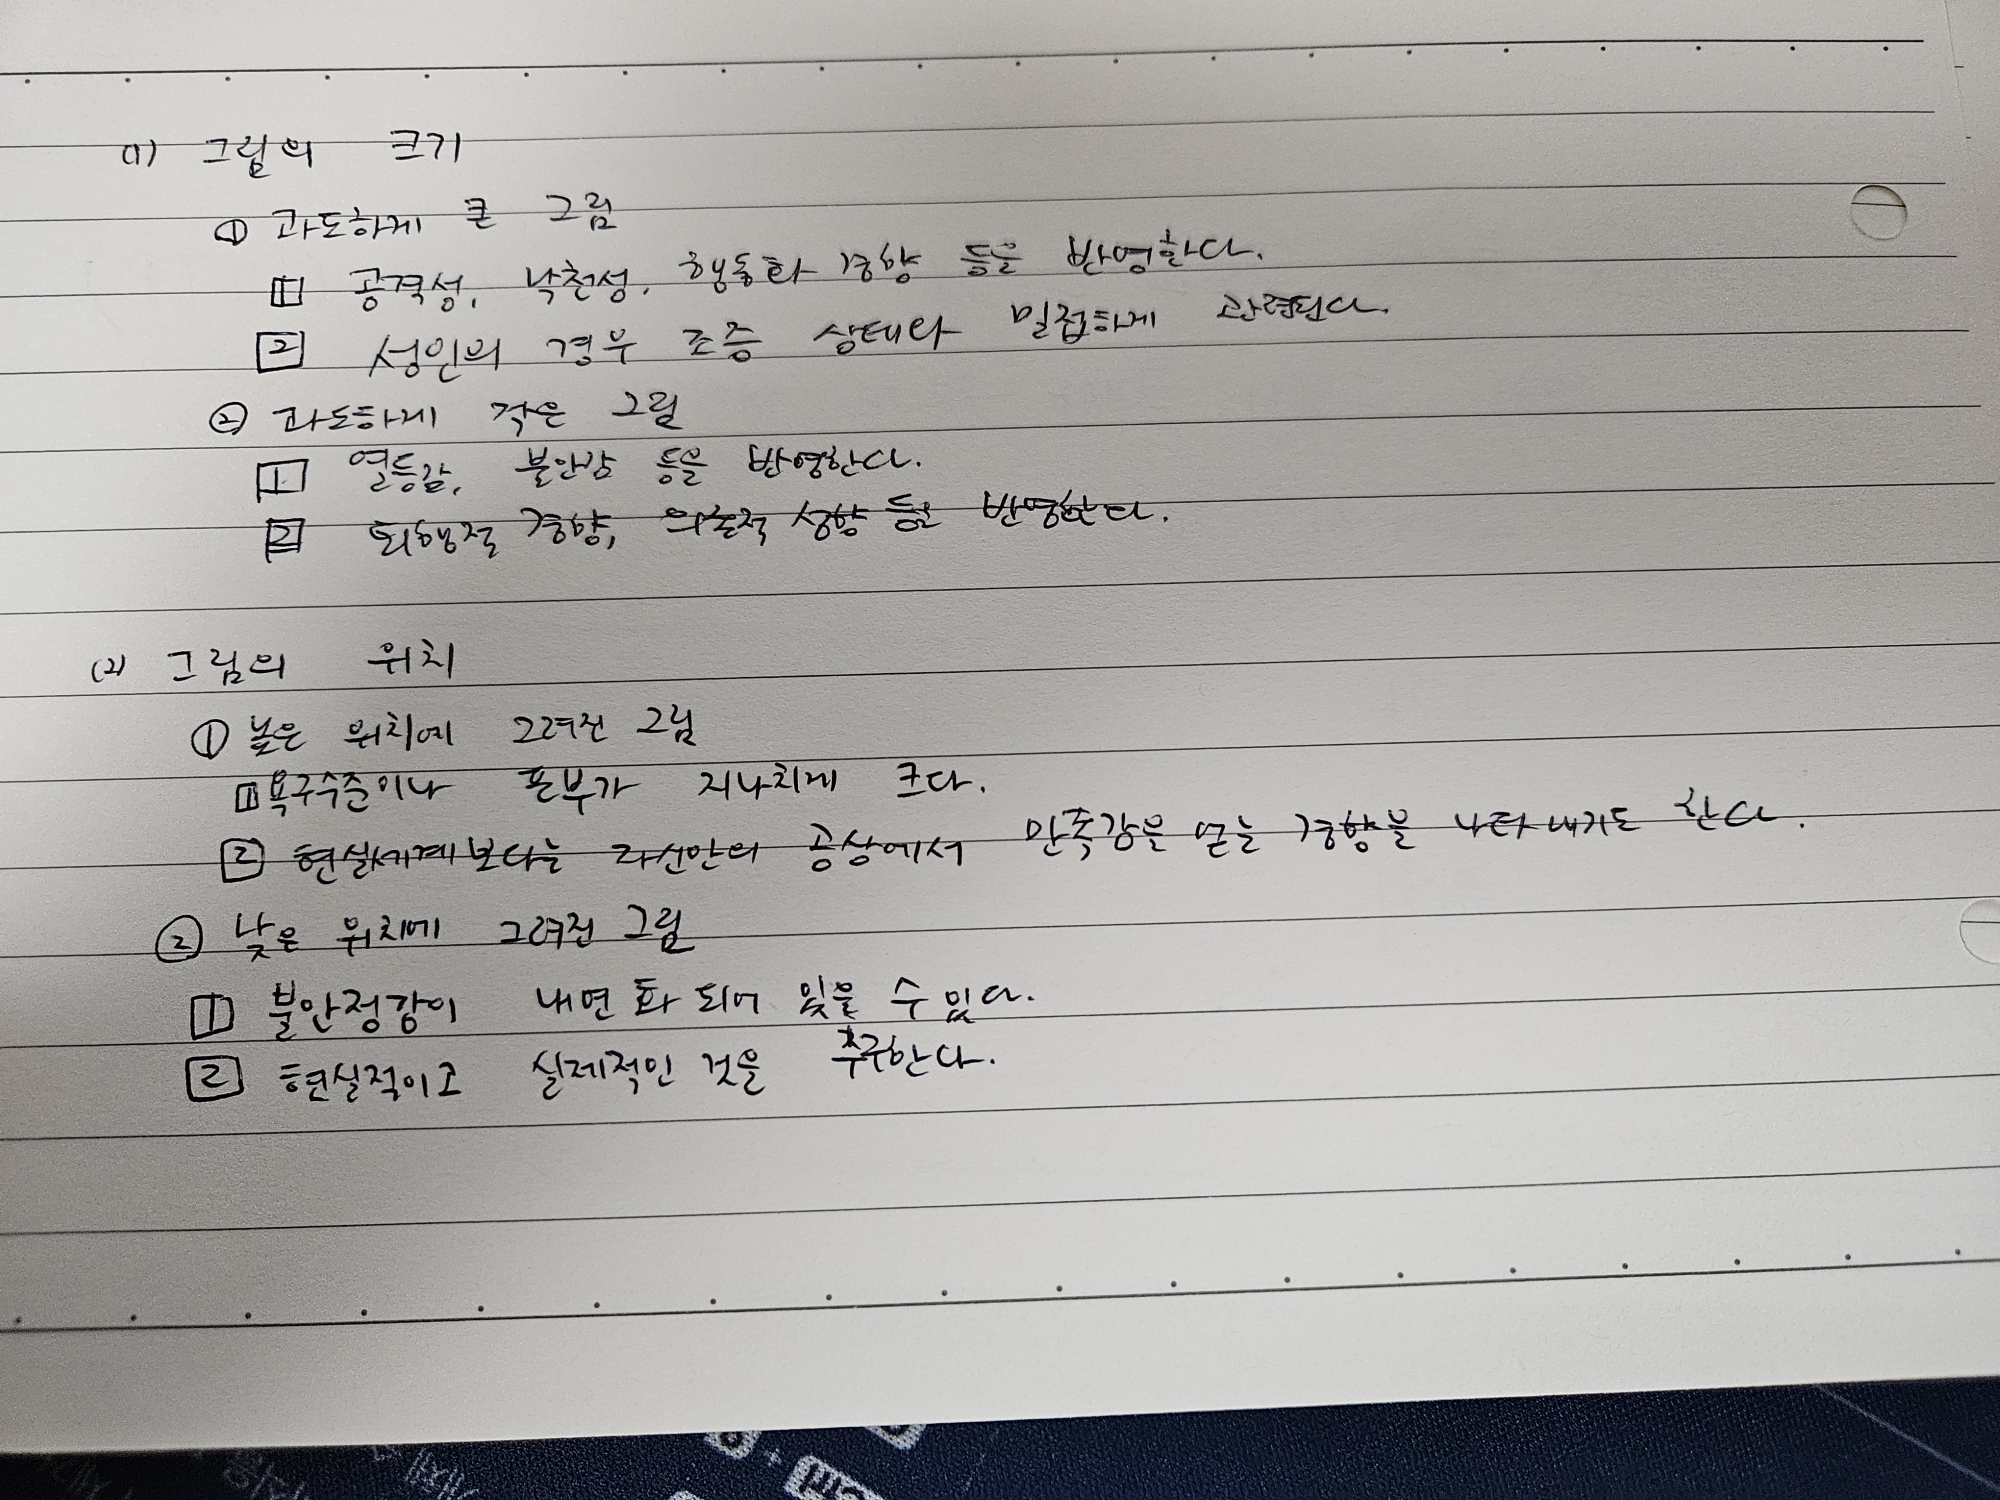 (1) 그림의 크기
① 과도하게 큰 그림
1 공격성, 낙천성, 행동화 경향 등을 반영한다.
2 성인의 경우 조증 상태와 밀접하게 관련된다.
② 과도하게 작은 그림
1 열등감, 불안감 등을 반영한다.
2 퇴행적 경향, 의존적 성향 등을 반영한다.
(2) 그림의 위치
① 높은 위치에 그려진 그림
1 욕구수준이나 포부가 지나치게 크다.
2 현실세계보다는 자신만의 공상에서 만족감을 얻는 경향을 나타내기도 한다.
② 낮은 위치에 그려진 그림
1 불안정감이 내면화 되어 있을 수 있다.
2 현실적이고 실제적인 것을 추구한다.